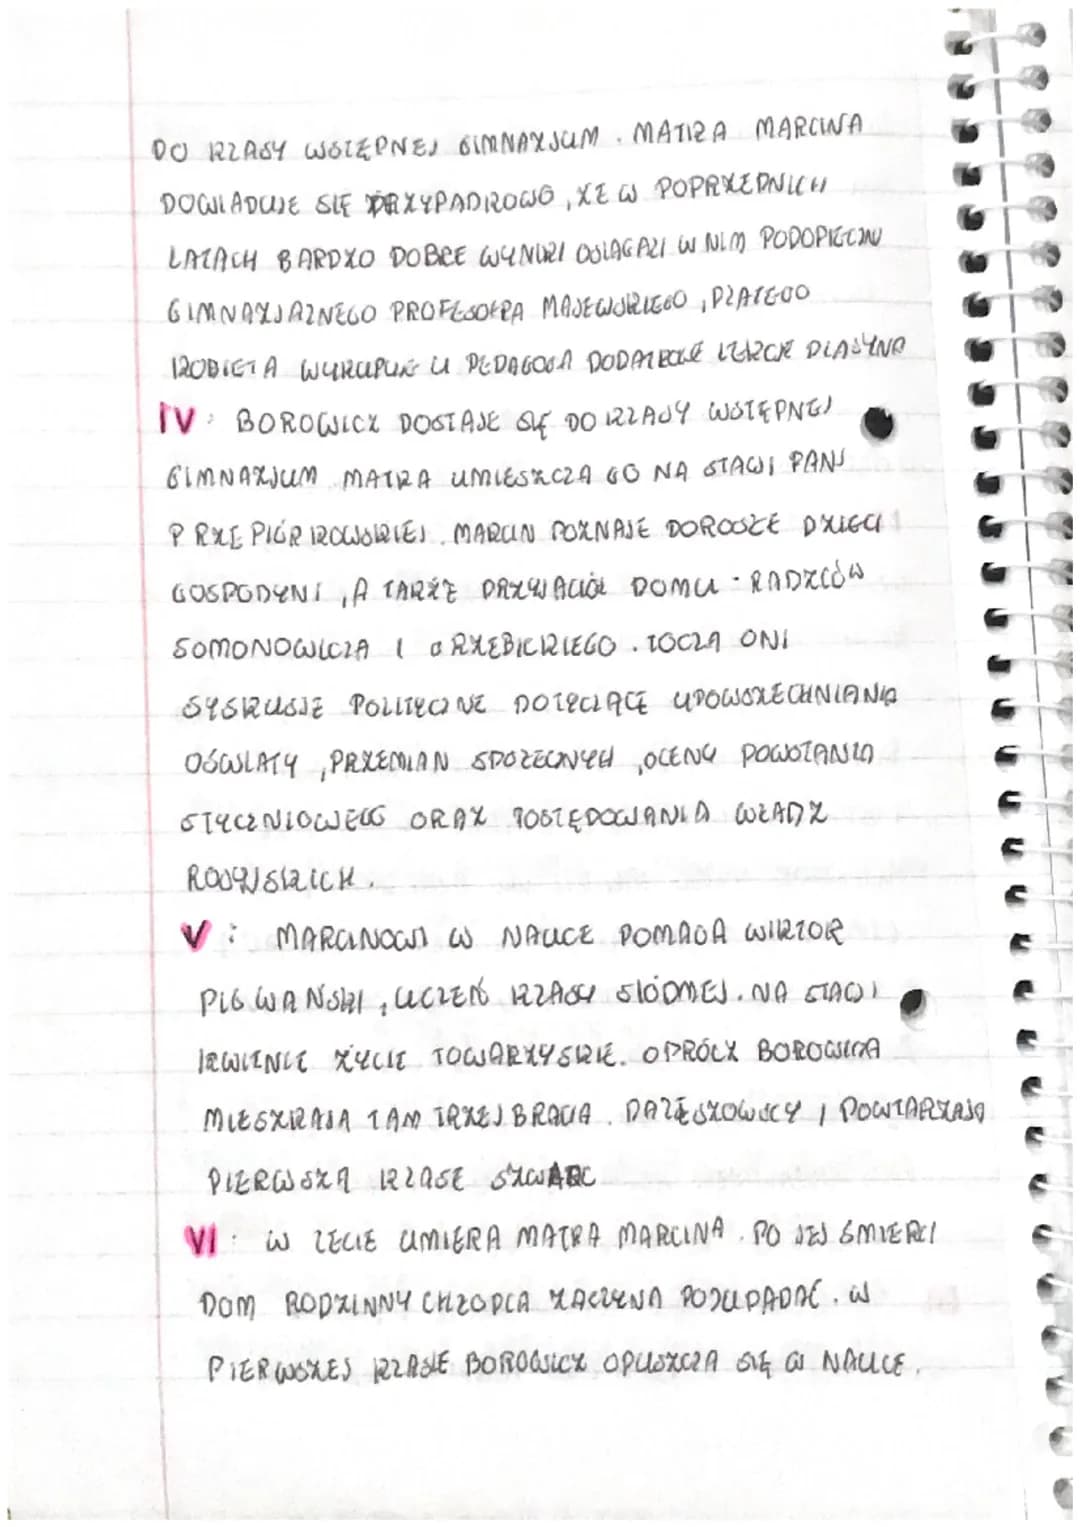 DO KLASY WSTĘPNEJ GIMNAZJUM. MATKA MARCINA
DOWIADUJE SIĘ PRZYPADKOWO, ŻE W POPRZEDNICH
LATACH BARDZO DOBRE WYNIKI OSIĄGALI W NIM PODOPIECZNI
GIMNAZJALNEGO PROFESORA MAJEWSKIEGO, DLATEGO
KOBIETA WYKUPUJE U PEDAGOGA DODATKOWE LEKCJE DLA SYNA
IV: BOROWICZ DOSTAJE SIĘ DO KLASY WSTĘPNEJ
GIMNAZJUM. MATKA UMIESZCZA GO NA STACJI PANI
PRZEPIÓRKOWSKIEJ. MARCIN POZNAJE DOROSŁE DZIECI
GOSPODYNI, A TAKŻE PRZYJACIÓŁ DOMU - RADZCÓW
SOMONOWICZA I GRZEBICKIEGO. TOCZĄ ONI
DYSKUSJE POLITYCZNE DOTYCZĄCE UPOWSZECHNIANIA
OŚWIATY, PRZEMIAN SPOŁECZNYCH, OCENY POWSTANIA
STYCZNIOWEGO ORAZ POSTĘPOWANIA WŁADZ
ROSYJSKICH.
V: MARCINOWI W NAUCE POMAGA WIKTOR
PIGWAŃSKI, UCZEŃ KLASY SIÓDMEJ. NA STACJI
KWITNIE ŻYCIE TOWARZYSKIE. OPRÓCZ BOROWICZA
MIESZKAJĄ TAM TRZEJ BRACIA. DALESZOWSCY I POWTARZAJĄ
PIERWSZĄ KLASĘ SZWARC
VI: W LECIE UMIERA MATKA MARCINA. PO JEJ ŚMIERCI
DOM RODZINNY CHŁOPCA ZACZYNA PODUPADAĆ. W
PIERWSZEJ KLASIE BOROWICZ OPUSZCZA SIĘ W NAUCE.